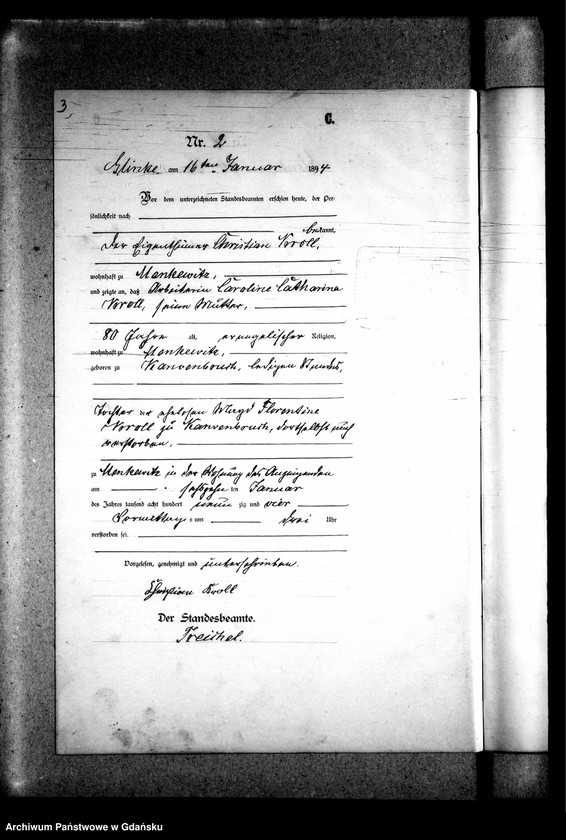 3,
C.
Nr. 2
Glincke am 16ten Januar 1894
Vor dem unterzeichneten Standesbeamten erschien heute, der Per-
sönlichkeit nach
bekannt,
der Eigenthümer Christian Kroll,
wohnhaft zu Mankewitz,
und zeigte an, daß Arbeiterin Caroline Catharina
Kroll, seine Mutter,
80 Jahre alt, evangelischer Religion,
wohnhaft zu Mankewitz,
geboren zu ledigen Standes,
Tochter der ehelosen Magd Florentine
Kroll zu daselbst auch
verstorben.
zu Mankewitz in der Wohnung des Anzeigenden
am sechszehn ten Januar
des Jahres tausend acht hundert neun zig und vier
Vormittags um drei Uhr
verstorben sei.
Vorgelesen, genehmigt und unterschrieben.
Christian Kroll
Der Standesbeamte.
Treichel.
Archiwum Państwowe w Gdańsku